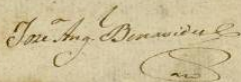 Joseª Angˡ Benavides